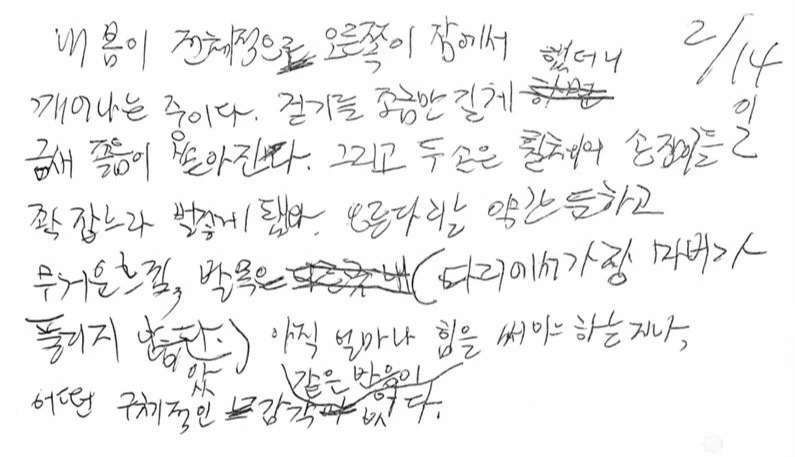 내 몸이 전체적으로 오른쪽이 잠에서 2/14일
깨어나는 중이다. 걷기를 조금만 길게 했더니
금새 졸음이 쏟아진다. 그리고 두 손은 휠체어의 손잡이를
꽉 잡느라 벌겋게 됐다. 오른다리는 약간 둔하고
무거운 느낌, 발목은 (다리에서 가장 마비가
풀리지 않았다.) 아직 얼마나 힘을 써야 하는지나,
어떤 구체적인 감각 같은 반응이 없다.